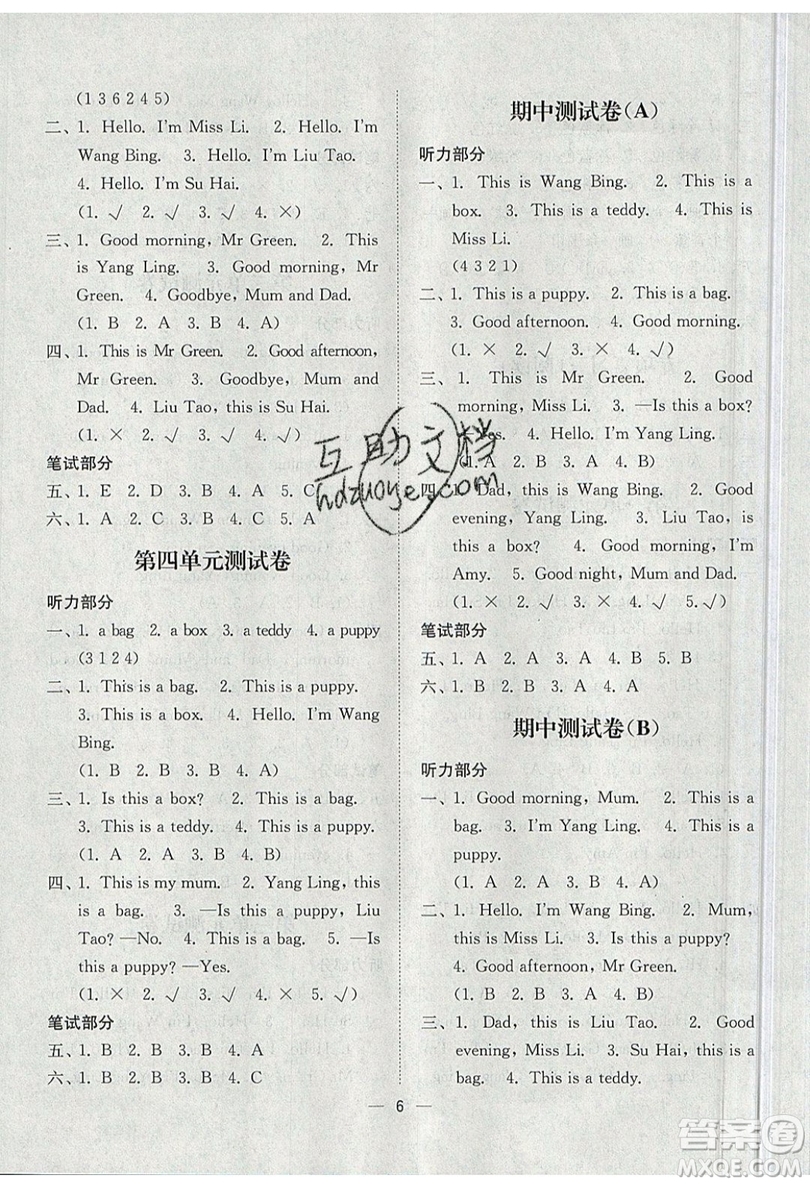 (1 3 6 2 4 5)
二、1. Hello. I'm Miss Li. 2. Hello. I'm
Wang Bing. 3. Hello. I'm Liu Tao.
4. Hello. I'm Su Hai.
(1. √ 2. √ 3. √ 4. ×)
三、1. Good morning, Mr Green. 2. This
is Yang Ling. 3. Good morning, Mr
Green. 4. Goodbye, Mum and Dad.
(1. B 2. A 3. B 4. A)
四、1. This is Mr Green. 2. Good afternoon,
Mr Green. 3. Goodbye, Mum and
Dad. 4. Liu Tao, this is Su Hai.
(1. × 2. √ 3. √ 4. √)
笔试部分
五、1. E 2. D 3. B 4. A 5. C
六、1. A 2. C 3. B 4. C 5. A
第四单元测试卷
听力部分
一、1. a bag 2. a box 3. a teddy 4. a puppy
(3 1 2 4)
二、1. This is a bag. 2. This is a puppy.
3. This is a box. 4. Hello. I'm Wang
Bing.
(1. B 2. B 3. B 4. A)
三、1. Is this a box? 2. This is a bag.
3. This is a teddy. 4. This is a puppy.
(1. A 2. A 3. B 4. B)
四、1. This is my mum. 2. Yang Ling, this
is a bag. 3. —Is this a puppy, Liu
Tao? —No. 4. This is a bag. 5. —Is
this a puppy? —Yes.
(1. × 2. √ 3. × 4. × 5. √)
笔试部分
五、1. B 2. A 3. B 4. A
六、1. B 2. A 3. B 4. C
期中测试卷(A)
听力部分
一、1. This is Wang Bing. 2. This is a
box. 3. This is a teddy. 4. This is
Miss Li.
(4 3 2 1)
二、1. This is a puppy. 2. This is a bag.
3. Good afternoon. 4. Good morning.
(1. × 2. √ 3. × 4. √)
三、1. This is a teddy. 2. Good
morning, Miss Li. 3. —Is this a box?
—Yes. 4. Hello. I'm Yang Ling.
(1. A 2. B 3. B 4. A)
四、1. Dad, this is Wang Bing. 2. Good
evening, Yang Ling. 3. Liu Tao, is
this a box? —No. 4. Hello, I'm
Amy. 5. Good night, Mum and Dad.
(1. × 2. √ 3. × 4. × 5. √)
笔试部分
五、1. A 2. A 3. B 4. B 5. B
六、1. B 2. A 3. A 4. A
期中测试卷(B)
听力部分
一、1. Good morning, Mum. 2. This is a
bag. 3. I'm Yang Ling. 4. This is a
puppy.
(1. B 2. A 3. B 4. A)
二、1. Hello. I'm Wang Bing. 2. Mum,
this is Miss Li. 3. Is this a puppy?
4. Good afternoon, Mr Green.
(1. B 2. B 3. A 4. B)
三、1. Dad, this is Liu Tao. 2. Good
evening, Miss Li. 3. Su Hai, this is
a teddy. 4. This is a teddy.
6
互助文档
hdzuoye.com
答案圈
MXQE.COM